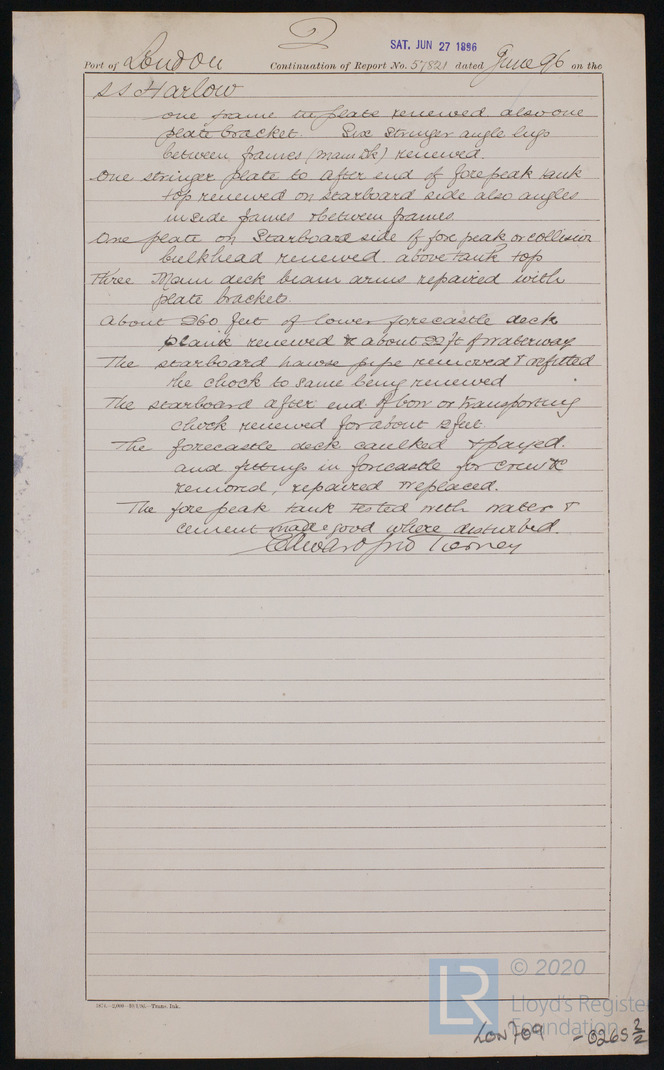 2
SAT. JUN 27 1896
Port of London Continuation of Report No. 57821 dated June 96 on the
SS Harlow
one frame plate renewed also one
plate bracket. Six Stringer angle lugs
between frames (main Dk) renewed.
One stringer plate to after end of forepeak tank
top renewed on starboard side also angles
inside frames & between frames
One plate on Starboard side of fore peak or collision
bulkhead renewed above tank top
Three Main deck beam arms repaired with
plate brackets.
About 260 feet of lower forecastle deck
plank renewed & about 22 ft of waterway
The starboard hawse pipe removed & refitted
the chock to same being renewed
The starboard after end of bow or Transporting
chock renewed for about 12 feet.
The forecastle deck caulked & payed.
and fittings in forecastle for crew &c
removed, repaired & replaced.
The fore peak tank tested with water &
cement made good where disturbed.
Edward Jno Tierney
© 2020
LR
Lloyd's Register
Foundation
LON 709 - 0265 2/2